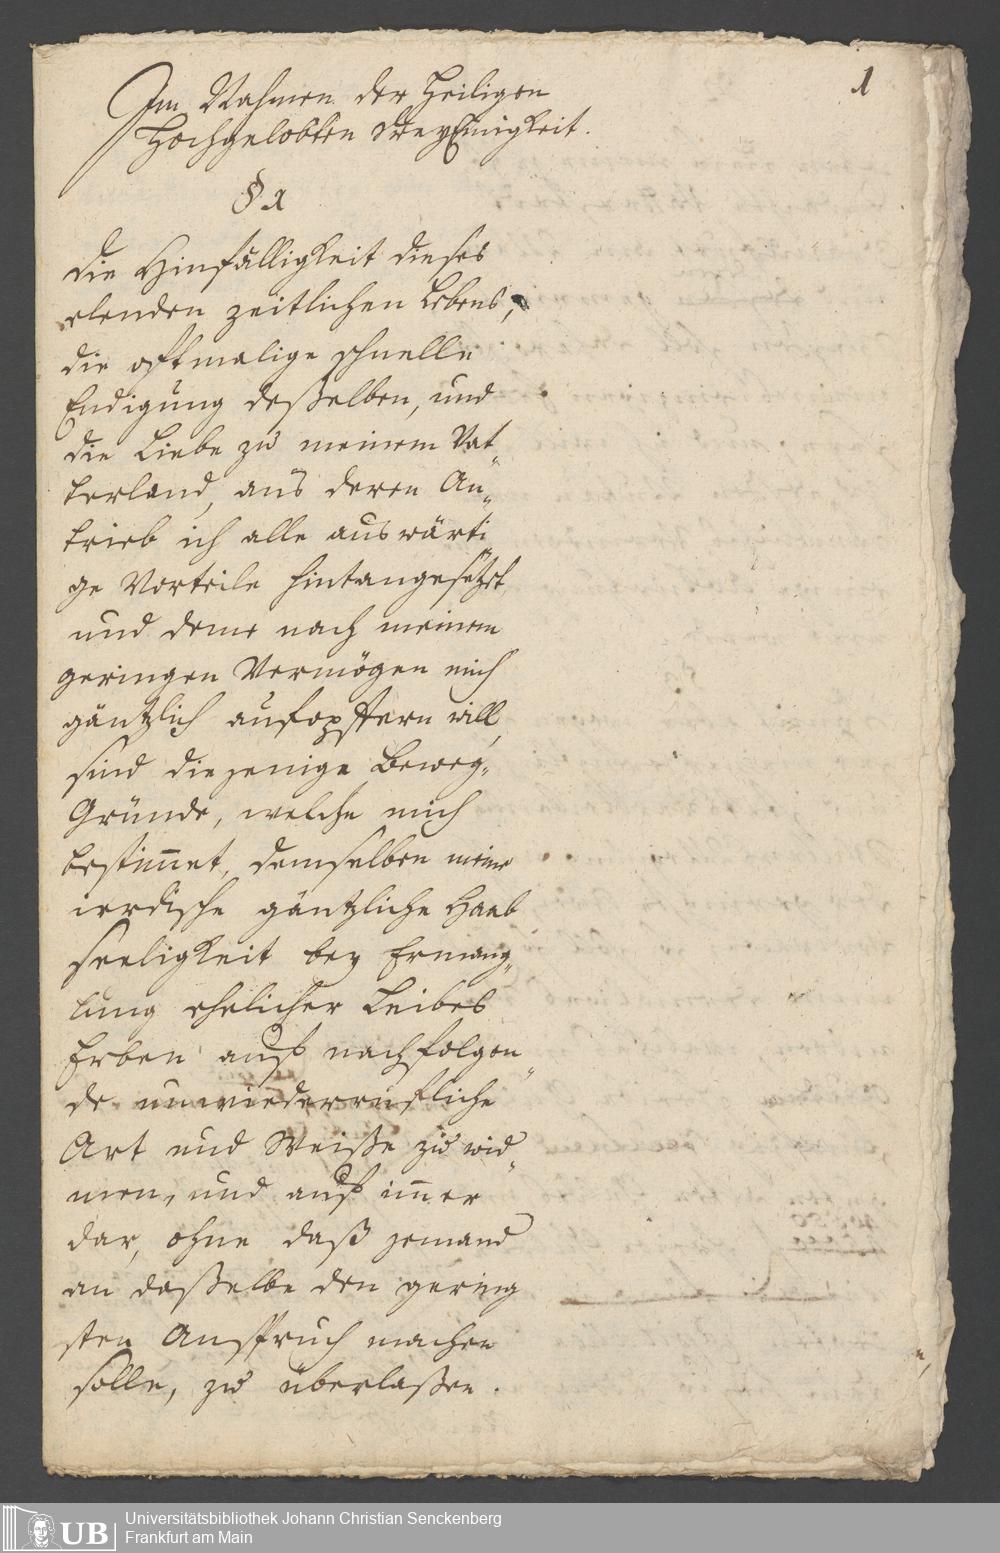 1
Im Nahmen der Heiligen
Hochgelobten DreyEinigkeit.
§ 1
Die Hinfälligkeit dieses
elenden zeitlichen Lebens,
die oftmalige schnelle
Endigung deßelben, und
die Liebe zu meinem Vat„
terland, aus deren An„
trieb ich alle auswärti
ge Vorteile hintangesetzt,
und deme nach meinem
geringen Vermögen mich
gäntzlich aufopffern will,
sind diejenige Beweg„
Gründe, welche mich
bestimmet, demselben meine
ierdische gäntzliche Haab
seeligkeit bey Ermang„
lung ehelicher Leibes
Erben auf nachfolgen„
de unwiederrufliche
Art und Weiße zu wid„
men, und auf immer
dar, ohne daß jemand
an daßelbe den gering
sten Anspruch machen
solle, zu überlaßen.
UB
Universitätsbibliothek Johann Christian Senckenberg
Frankfurt am Main